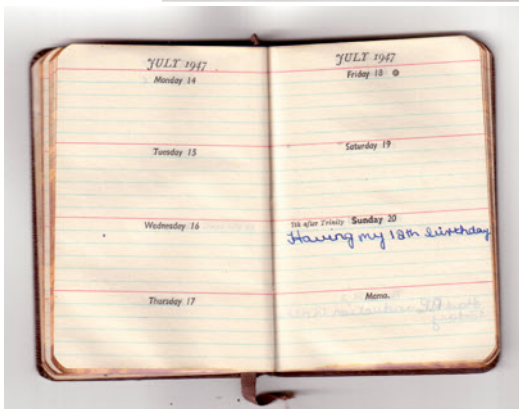 JULY 1947
Monday 14
Tuesday 15
Wednesday 16
Thursday 17
JULY 1947
Friday 18
Saturday 19
7th after Trinity Sunday 20
Having my 18th birthday
Memo.